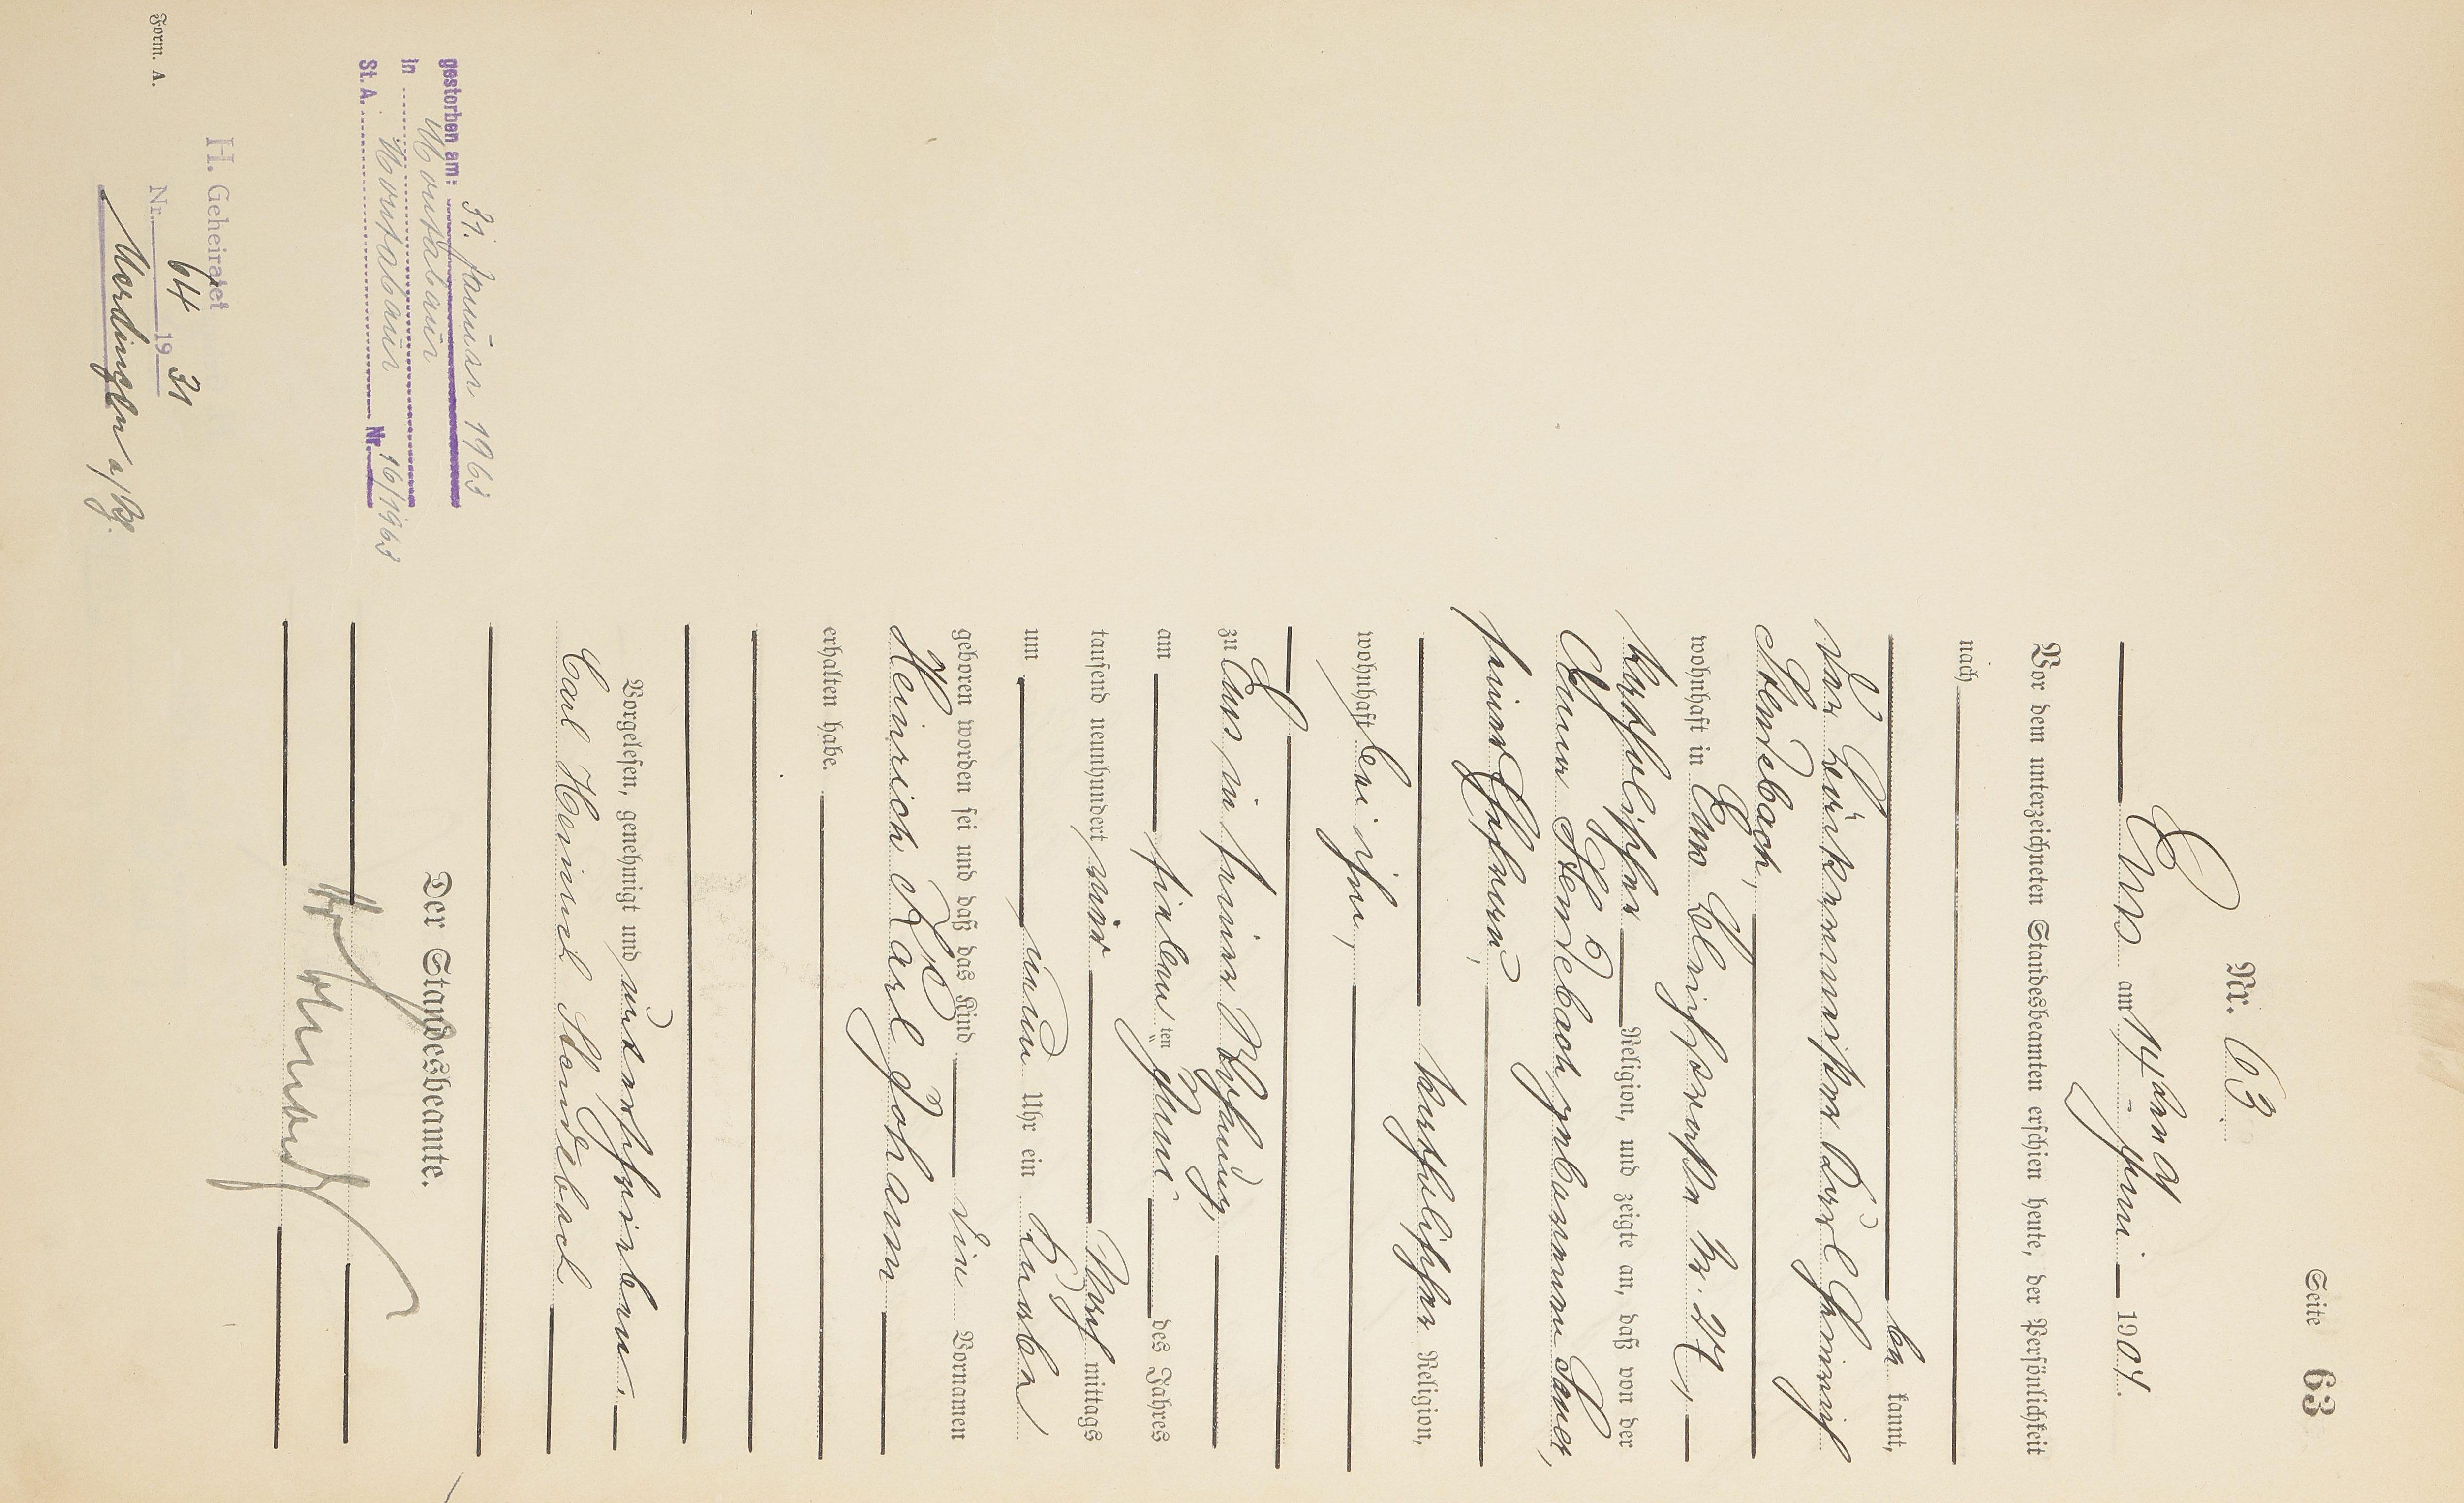 Seite 63
Nr. 63.
Ems am 14ten Juni 1904.
Vor dem unterzeichneten Standesbeamten erschien heute, der Persönlichkeit
nach
be kannt,
der Heinrich
Stendebach,
wohnhaft in Ems, Nr. 24,
katholischer Religion, und zeigte an, daß von der
Anna Stendebach, geborenen
seiner Ehefrau,
katholischer Religion,
wohnhaft bei ihm,
zu Ems in seiner Wohnung,
am sieben ten Juni des Jahres
tausend neunhundert vier Nach mittags
um neun Uhr ein Knabe
geboren worden sei und daß das Kind die Vornamen
Heinrich Karl Johann
erhalten habe.
Vorgelesen, genehmigt und unterschrieben.
Carl Heinrich Stendebach
Der Standesbeamte.
gestorben am: 31. Januar 1963
in Montabaur
St. A. Montabaur Nr. 16/1963
H. Geheiratet
Nr. 64 19 31
Form. A.